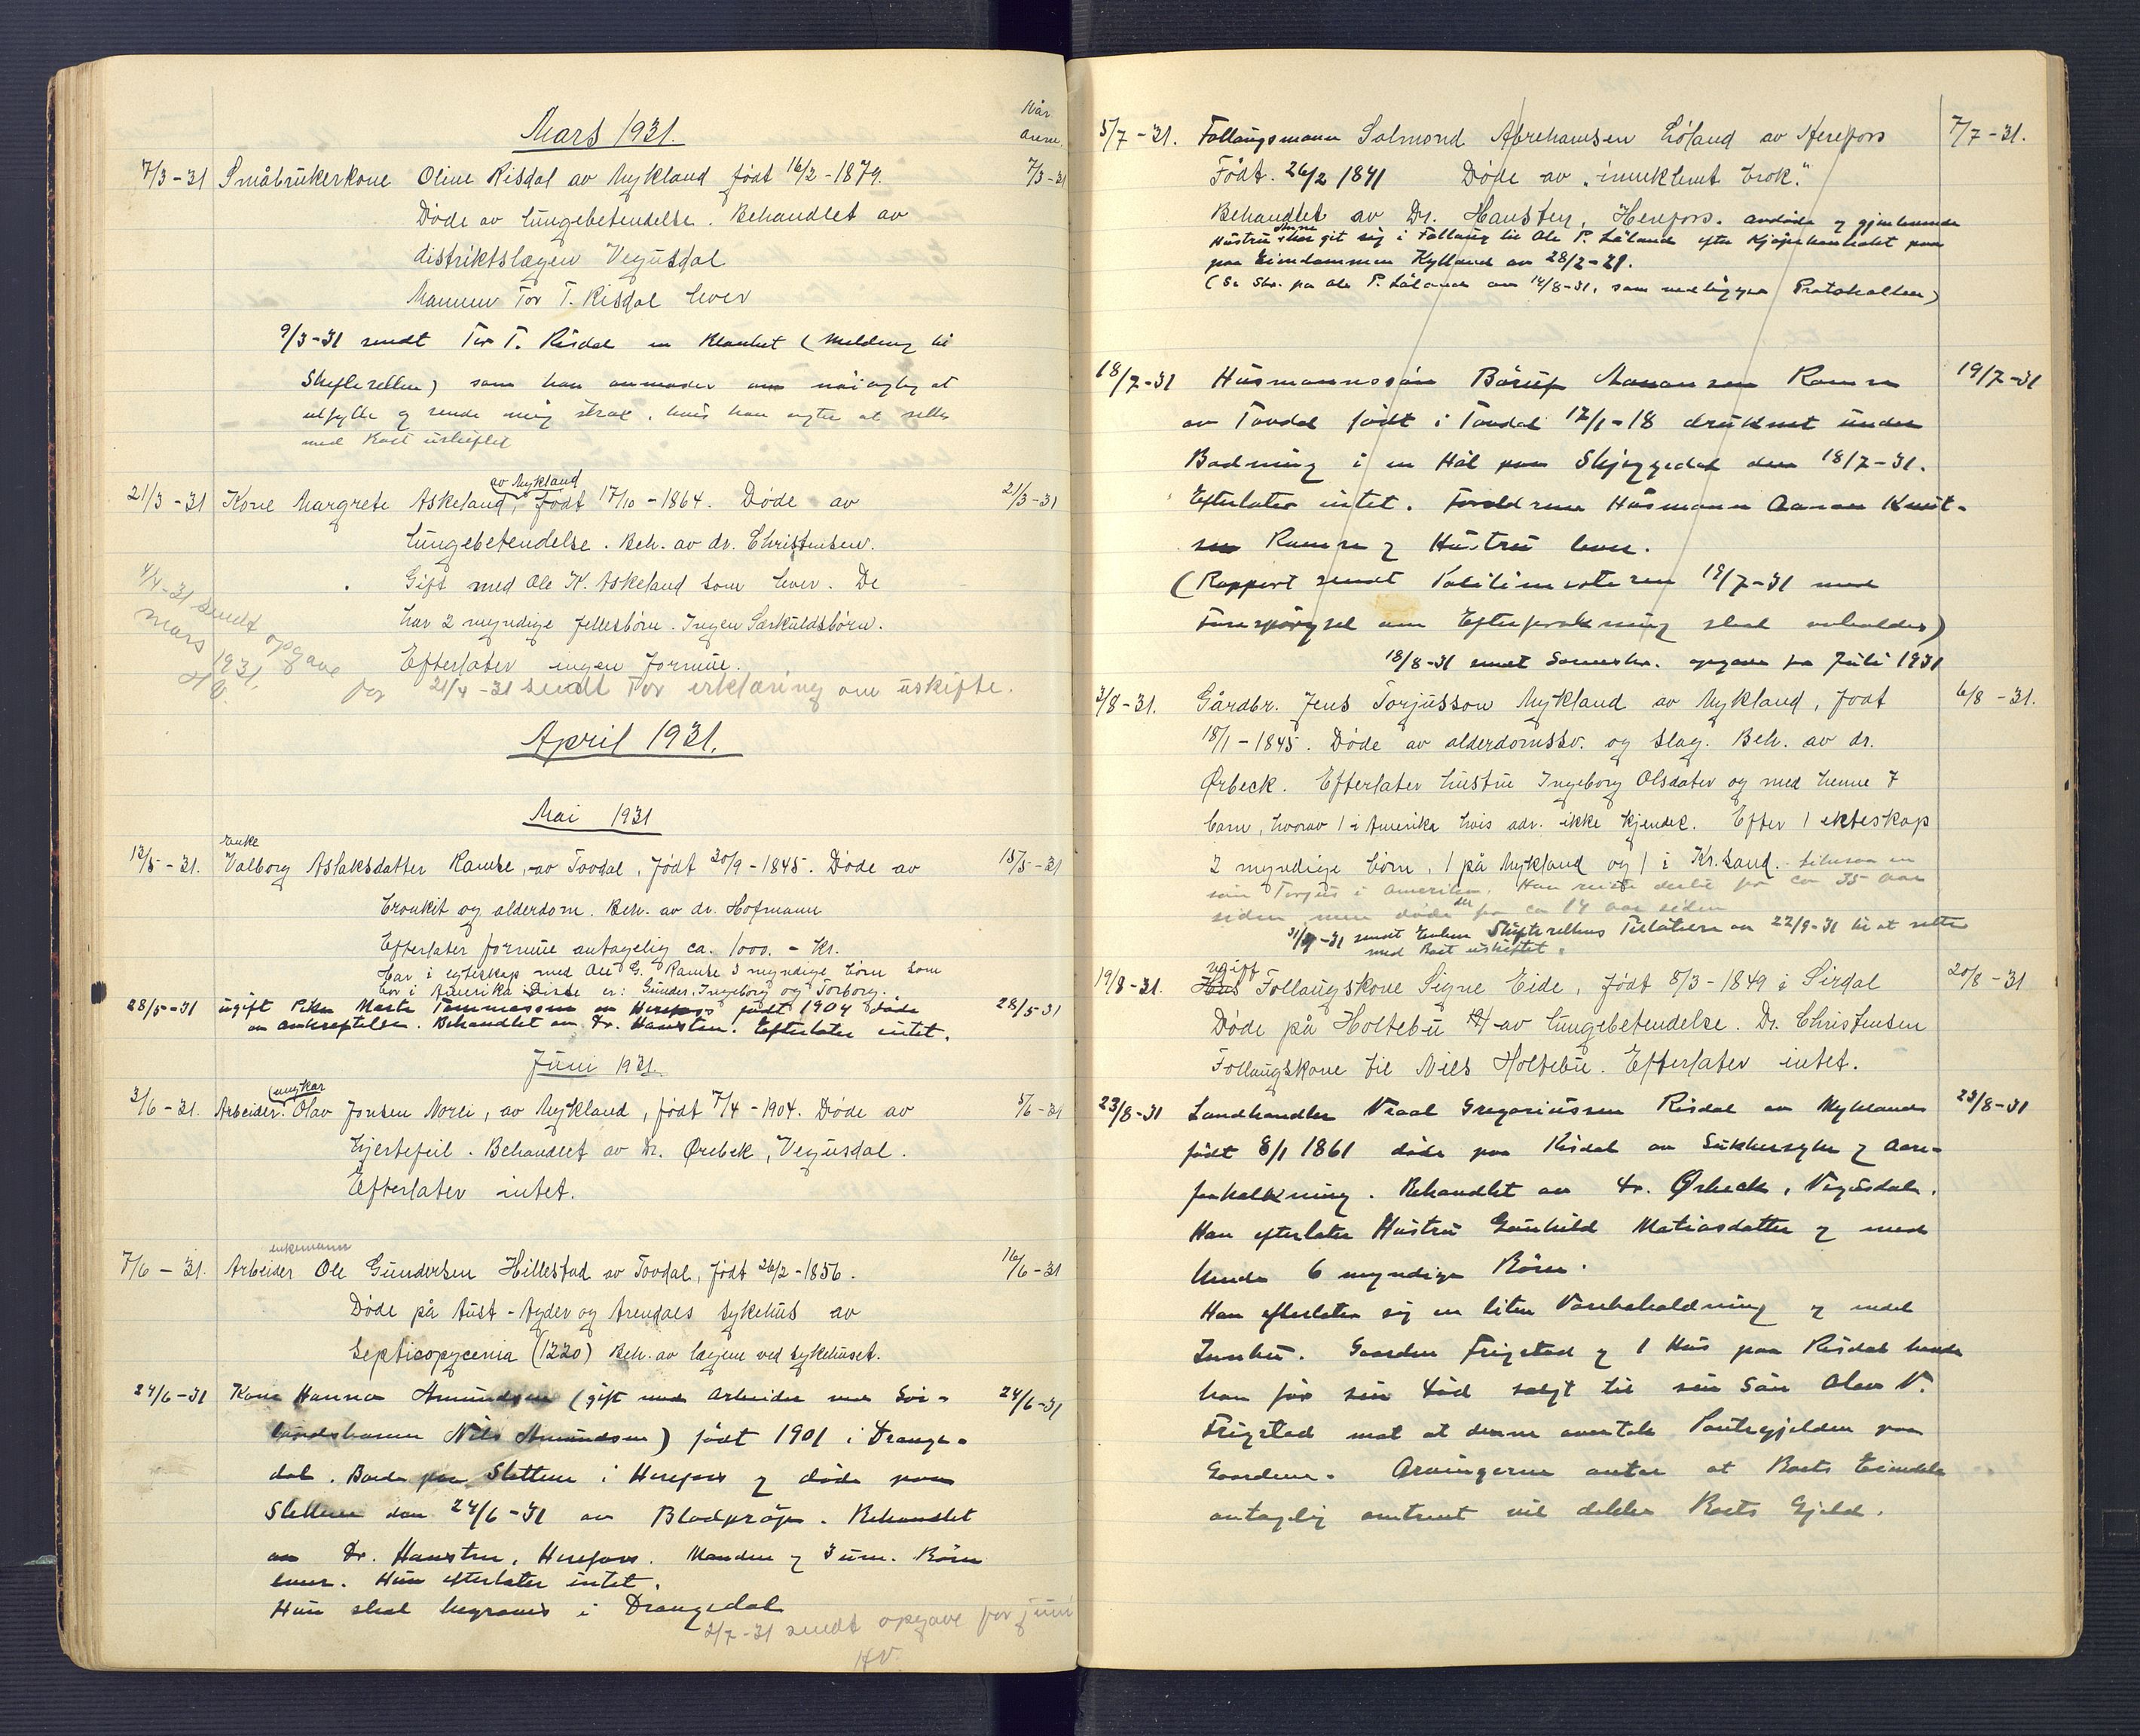 Mars 1931.
Når
anm.
7/3-31 Småbrukerkone Oline Risdal av Mykland født 16/2-1879. 7/3-31
Døde av lungebetendelse. Behandlet av
distriktslægen Vegusdal
Mannen Tor T. Risdal lever
9/3-31 sendt Tor T. Risdal en Blanket (Melding til
Skifteretten) som han anmodes om nöiagtig at
utfylde og sende mig strax, hvis han agter at sitte
med Boet uskiftet
av Mykland
21/3-31 Kone Margrete Askeland, født 17/10-1864. Døde av 21/3-31
lungebetendelse. Beh. av dr. Christensen.
Gift med Ole K. Askeland som lever. De
har 2 myndige fellesbörn. Ingen Særkuldsbörn.
Efterlater ingen formue.
4/4-31 sendt opgave for
mars 1931.
21/4-31 sendt Tor erklæring om uskifte.
April 1931.
Mai 1931
enke
12/5-31. Valborg Aslaksdatter Ramse, av Tovdal, født 20/9-1845. Døde av 15/5-31
bronkit og alderdom. Beh. av dr. Hofmann
Efterlater formue antagelig ca. 1000.- kr.
Har i egteskap med Ole G. Ramse 3 myndige börn som
bor i Amerika Disse er: Gunder, Ingeborg og Torborg.
28/5-31 ugift Pike Marte Tommassen av Herefoss født 1904 døde 28/5-31
av . Behandlet av Dr. Hansten. Efterlater intet.
Juni 1931.
(ungkar
3/6-31. Arbeider. Olav Jonsen Norei, av Mykland, født 7/4-1904. Døde av 5/6-31
hjertefeil. Behandlet av Dr. Ørebek, Vegusdal.
Efterlater intet.
enkemann
7/6-31. Arbeider Ole Gundersen Hillestad av Tovdal, født 26/2-1856. 16/6-31
Døde på Aust-Agder og Arendals sykehus av
Septicopycemia (1220) Beh. av lægene ved sykehuset.
24/6-31 Kone Hanna Amundsen (gift med Arbeider ved Sör- 24/6-31
landsbanen Nils Amundsen) født 1901 i Drange-
dal. Bodde paa Sletten i Herefoss og døde paa
Sletten den 24/6-31 av Blodpröp. Behandlet
av Dr. Hansten, Herefoss. Manden og 3 um. Börn
lever. Hun efterlater intet.
Hun skal begraves i Drangedal
2/7-31 sendt opgave for juni
HV.
5/7-31. Follaugsmann Salmond Abrehamsen Löland av Herefoss 7/7-31.
Født. 26/2 1841 Døde av "inneklemt brok."
Behandlet av Dr. Hansten, Herefoss. avdøde og gjenlevende
Hustru har git sig i Follaug til Ole P. Löland efter Kjöpekontrakt paa
paa Eiendommen Kylland av 28/2-21.
(Se Skr. fra Ole P. Löland av 14/8-31, som vedligger Protokollen)
18/7-31 Husmannssön Börup Aanonsen Ramse 19/7-31
av Tovdal født i Tovdal 17/1-18 druknet under
Badning i en Höl paa Skjeggedal den 18/7-31.
Efterlater intet. Foreldrene Husmann Aanon Knut-
sen Ramse og Hustru lever.
(Rapport sendt Politimesteren 19/7-31 med
Forespörgsel om Efterforskning skal avholdes)
18/8-31 sendt Sorenskr. opgave for Juli 1931
3/8-31. Gårdbr. Jens Torjusson Mykland av Mykland, født 6/8-31.
18/1-1845. Døde av alderdomssv. og slag. Beh. av dr.
Ørbeck. Efterlater hustru Ingeborg Olsdater og med henne 7
barn, hvorav 1 i Amerika hvis adr. ikke kjendes. Efter 1 ekteskap
2 myndige börn, 1 på Mykland og 1 i Kr.sand.
sön Torjus i Amerika. Han reiste dertil for ca 35 aar
siden men døde der for ca 14 aar siden
sendt Enken Skifterettens Tillatelse av 22/9-31 til at sitte
med Boet uskiftet.
ugift
19/8-31. Hus Follaugskone Signe Eide, født 8/3-1849 i Sirdal 20/8-31
Døde på Holtebu av lungebetendelse. Dr. Christensen
Follaugskone til Nils Holtebu. Efterlater intet.
23/8-31 Landhandler Vraal Gregoriussen Risdal av Mykland 23/8-31
født 8/1 1861 døde paa Risdal av Sukkersyke og Aare-
forkalkning. Behandlet av Dr. Ørbeck, Vegusdal.
Han efterlater Hustru Gunhild Matiasdatter og med
hende 6 myndige Börn.
Han efterlater sig en liten Varebeholdning og endel
Innbu. Gaarden Frigstad og 1 Hus paa Risdal hadde
han för sin Död solgt til sin Sön Olav V.
Frigstad mot at denne overtok Pantegjelden paa
Gaardene. Arvingerne antar at Boets Eiendele
antagelig omtrent vil dekke Boets Gjeld.